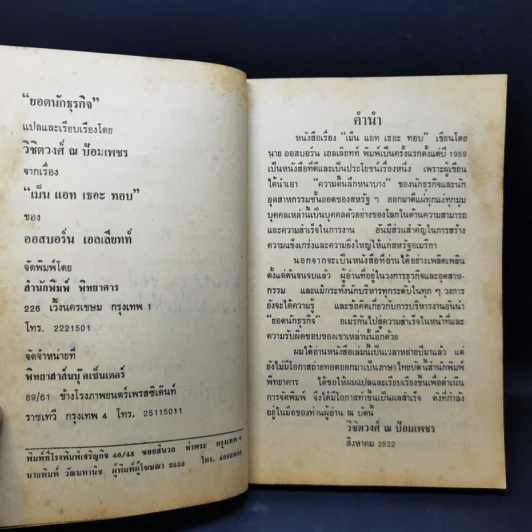 "ยอดนักธุรกิจ"
แปลและเรียบเรียงโดย
วิชิตวงศ์ ณ ป้อมเพชร
จากเรื่อง
"เม็น แอท เธอะ ทอบ"
ของ
ออสบอร์น เอลเลียทท์
จัดพิมพ์โดย
สำนักพิมพ์ พิทยาคาร
226 เวิ้งนครเขษม กรุงเทพ 1
โทร. 2221501
จัดจำหน่ายที่
พิทยาสาส์นบุ๊คเซ็นเตอร์
89/61 ข้างโรงภาพยนตร์เพรสซิเด้นท์
ราชเทวี กรุงเทพ 4 โทร. 25115011
พิมพ์ที่โรงพิมพ์เจริญกิจ 40/42 ซอยสีนวล ท่าพระ กรุงเทพ ฯ
นายพิมพ์ วัฒนพานิช ผู้พิมพ์ผู้โฆษณา 2523 โทร.
คำนำ
หนังสือเรื่อง "เม็น แอท เธอะ ทอบ" เขียนโดย
นาย ออสบอร์น เอลเลียทท์ พิมพ์เป็นครั้งแรกตั้งแต่ปี 1959
เป็นหนังสือที่ดีและเป็นประโยชน์เรื่องหนึ่ง เพราะผู้เขียน
ได้นำเอา "ความตื้นลึกหนาบาง" ของนักธุรกิจและนัก
อุตสาหกรรมชั้นยอดของสหรัฐ ฯ ออกมาตีแผ่ทุกแง่ทุกมุม
บุคคลเหล่านี้เป็นบุคคลตัวอย่างของโลกในด้านความสามารถ
และความสำเร็จในการงาน อันมีส่วนสำคัญในการสร้าง
ความแข็งแกร่งและความยิ่งใหญ่ให้แก่สหรัฐอเมริกา
นอกจากจะเป็นหนังสือที่อ่านได้อย่างเพลิดเพลิน
ตั้งแต่ต้นจนจบแล้ว ผู้อ่านที่อยู่ในวงการธุรกิจและอุตสาห-
กรรม และแม้กระทั่งนักบริหารทุกระดับในทุก ๆ วงการ
ยังจะได้ความรู้ และข้อคิดเกี่ยวกับการบริหารงานอันนำ
"ยอดนักธุรกิจ" อเมริกันไปสู่ความสำเร็จในหน้าที่และ
ความรับผิดชอบของเขาเหล่านั้นอีกด้วย
ผมได้อ่านหนังสือเล่มนี้เป็นเวลาหลายปีมาแล้ว แต่
ยังไม่มีโอกาสถ่ายทอดออกมาเป็นภาษาไทยบัดนี้สำนักพิมพ์
พิทยาคาร ได้ขอให้ผมแปลและเรียบเรียงขึ้นเพื่อดำเนิน
การจัดพิมพ์ จึงได้มีโอกาสทำขึ้นเป็นผลสำเร็จ ดังที่กำลัง
อยู่ในมือของท่านผู้อ่าน ณ บัดนี้
วิชิตวงศ์ ณ ป้อมเพชร
สิงหาคม 2522